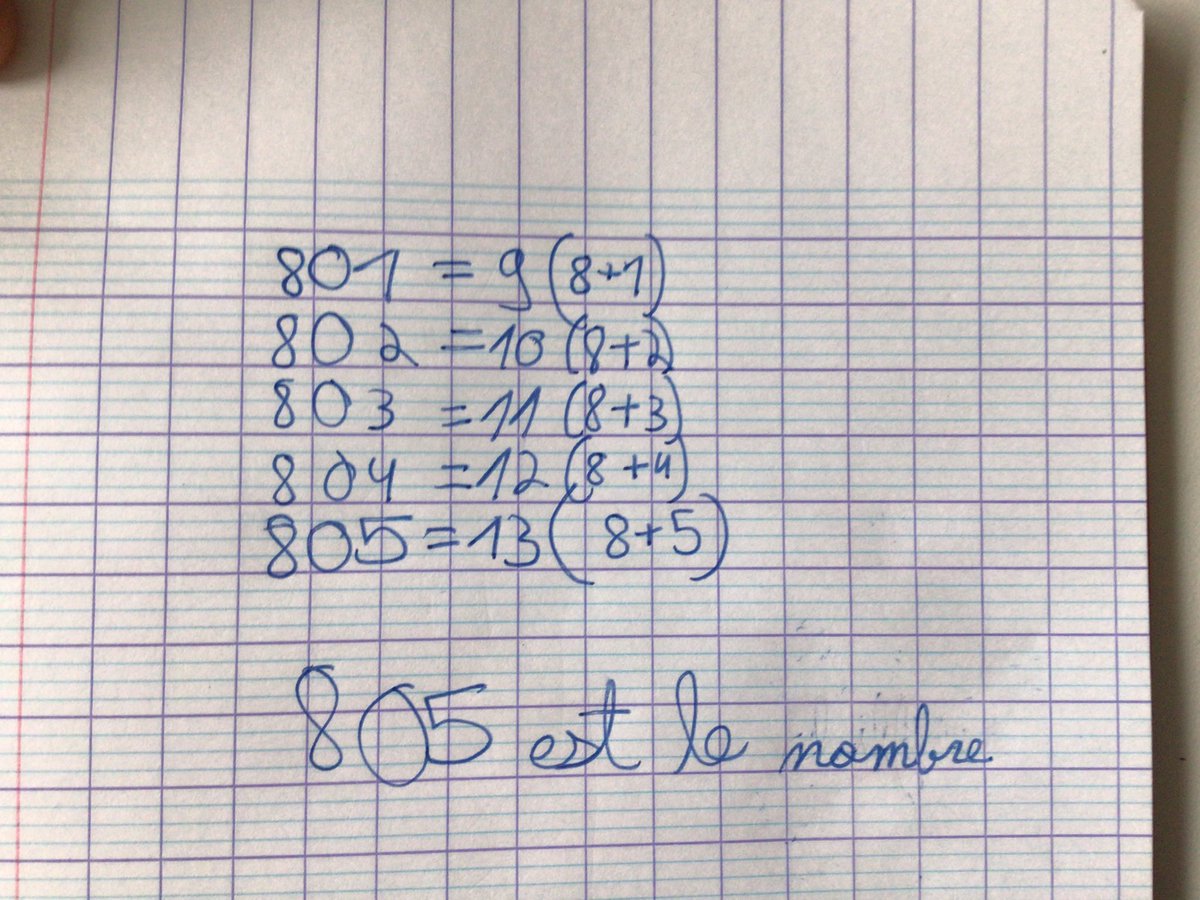 801 = 9 (8+1)
802 = 10 (8+2)
803 = 11 (8+3)
804 = 12 (8+4)
805 = 13 (8+5)
805 est le nombre